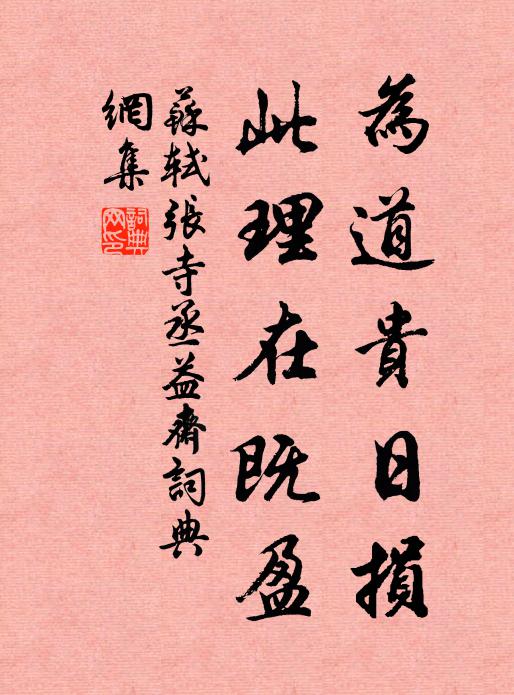 為道貴日損
此理在既盈
蘇軾張寺丞益齋詞典
網集
詞典網印